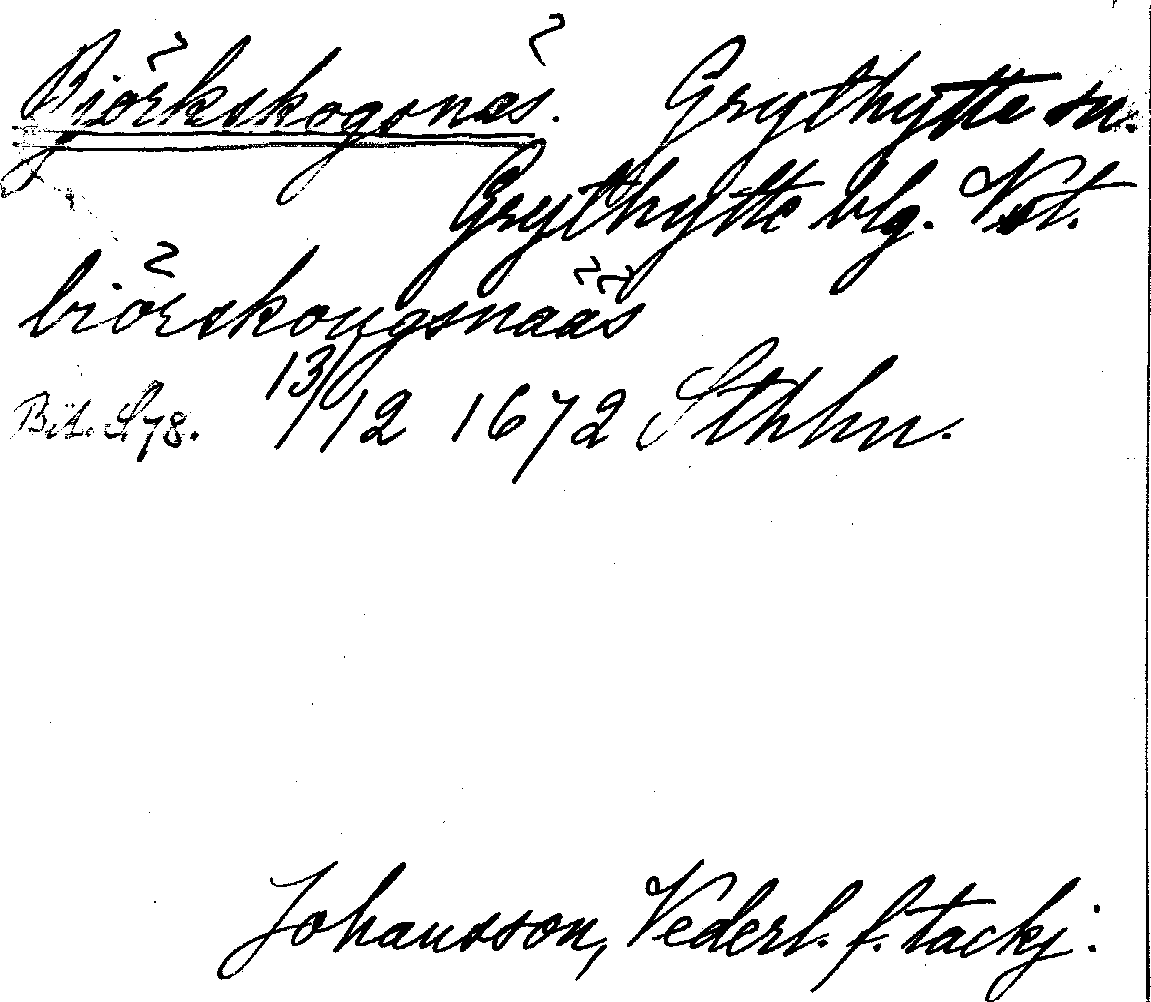 Björkskogsnäs. Grythytte sn.
Grythytte blg. Vst.
biörskougsnääs
Bit. S. 78. 13/12 1672 Sthhn.
Johansson, Vederl. f. tackj.